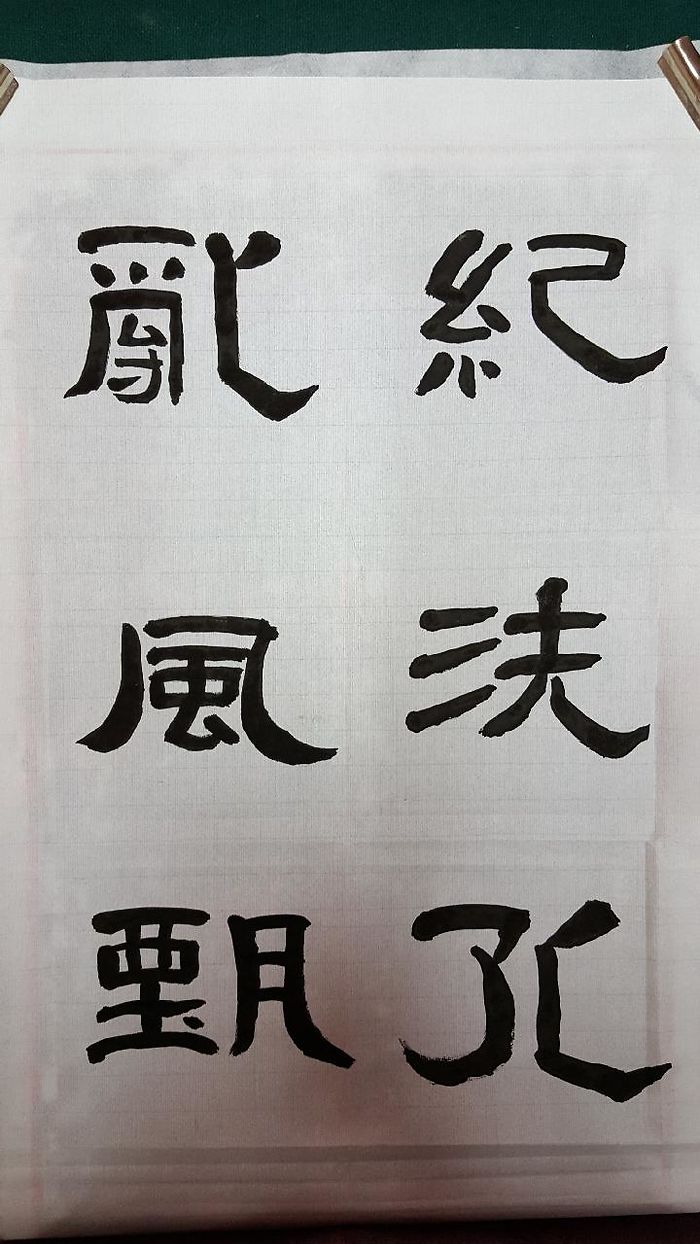 紀法孔
亂風甄